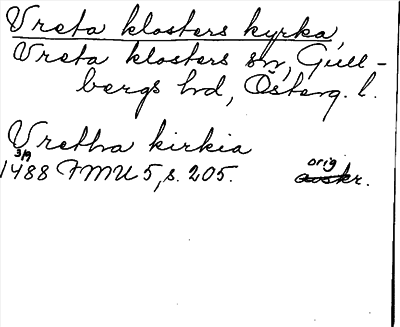 Vreta klosters kyrka,
Vreta klosters sn, Gull-
bergs hd, Österg. l.
Vretha kirkia
3/9 orig
1488 FMU 5, s. 205. avskr.